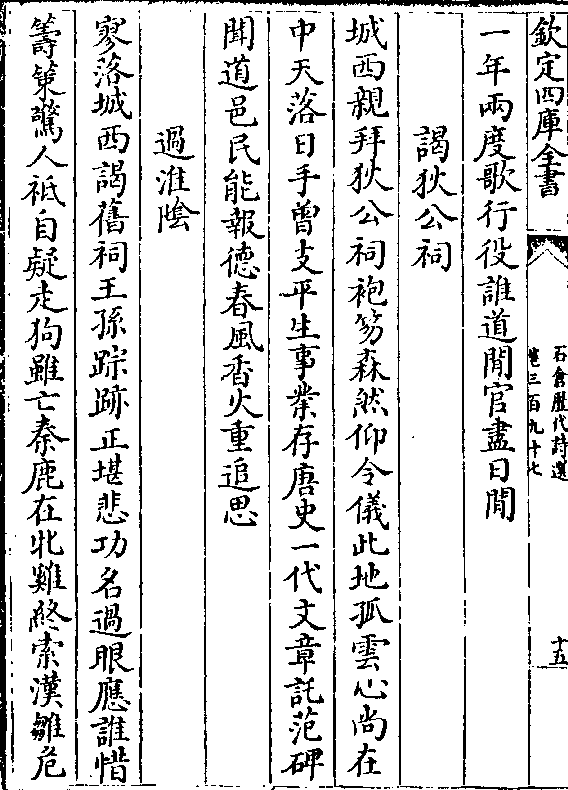 欽定四庫全書
石倉歷代詩選
卷三百九十七
十五
一年兩度歌行役誰道閒官盡日閒
謁狄公祠
城西親拜狄公祠袍笏森然仰令儀此地孤雲心尚在
中天落日手曾支平生事業存唐史一代文章託范碑
聞道邑民能報德春風香火重追思
過淮陰
寥落城西謁舊祠王孫踪跡正堪悲功名過眼應誰惜
籌策驚人祗自疑走狗雖亡秦鹿在牝雞終索漢雛危